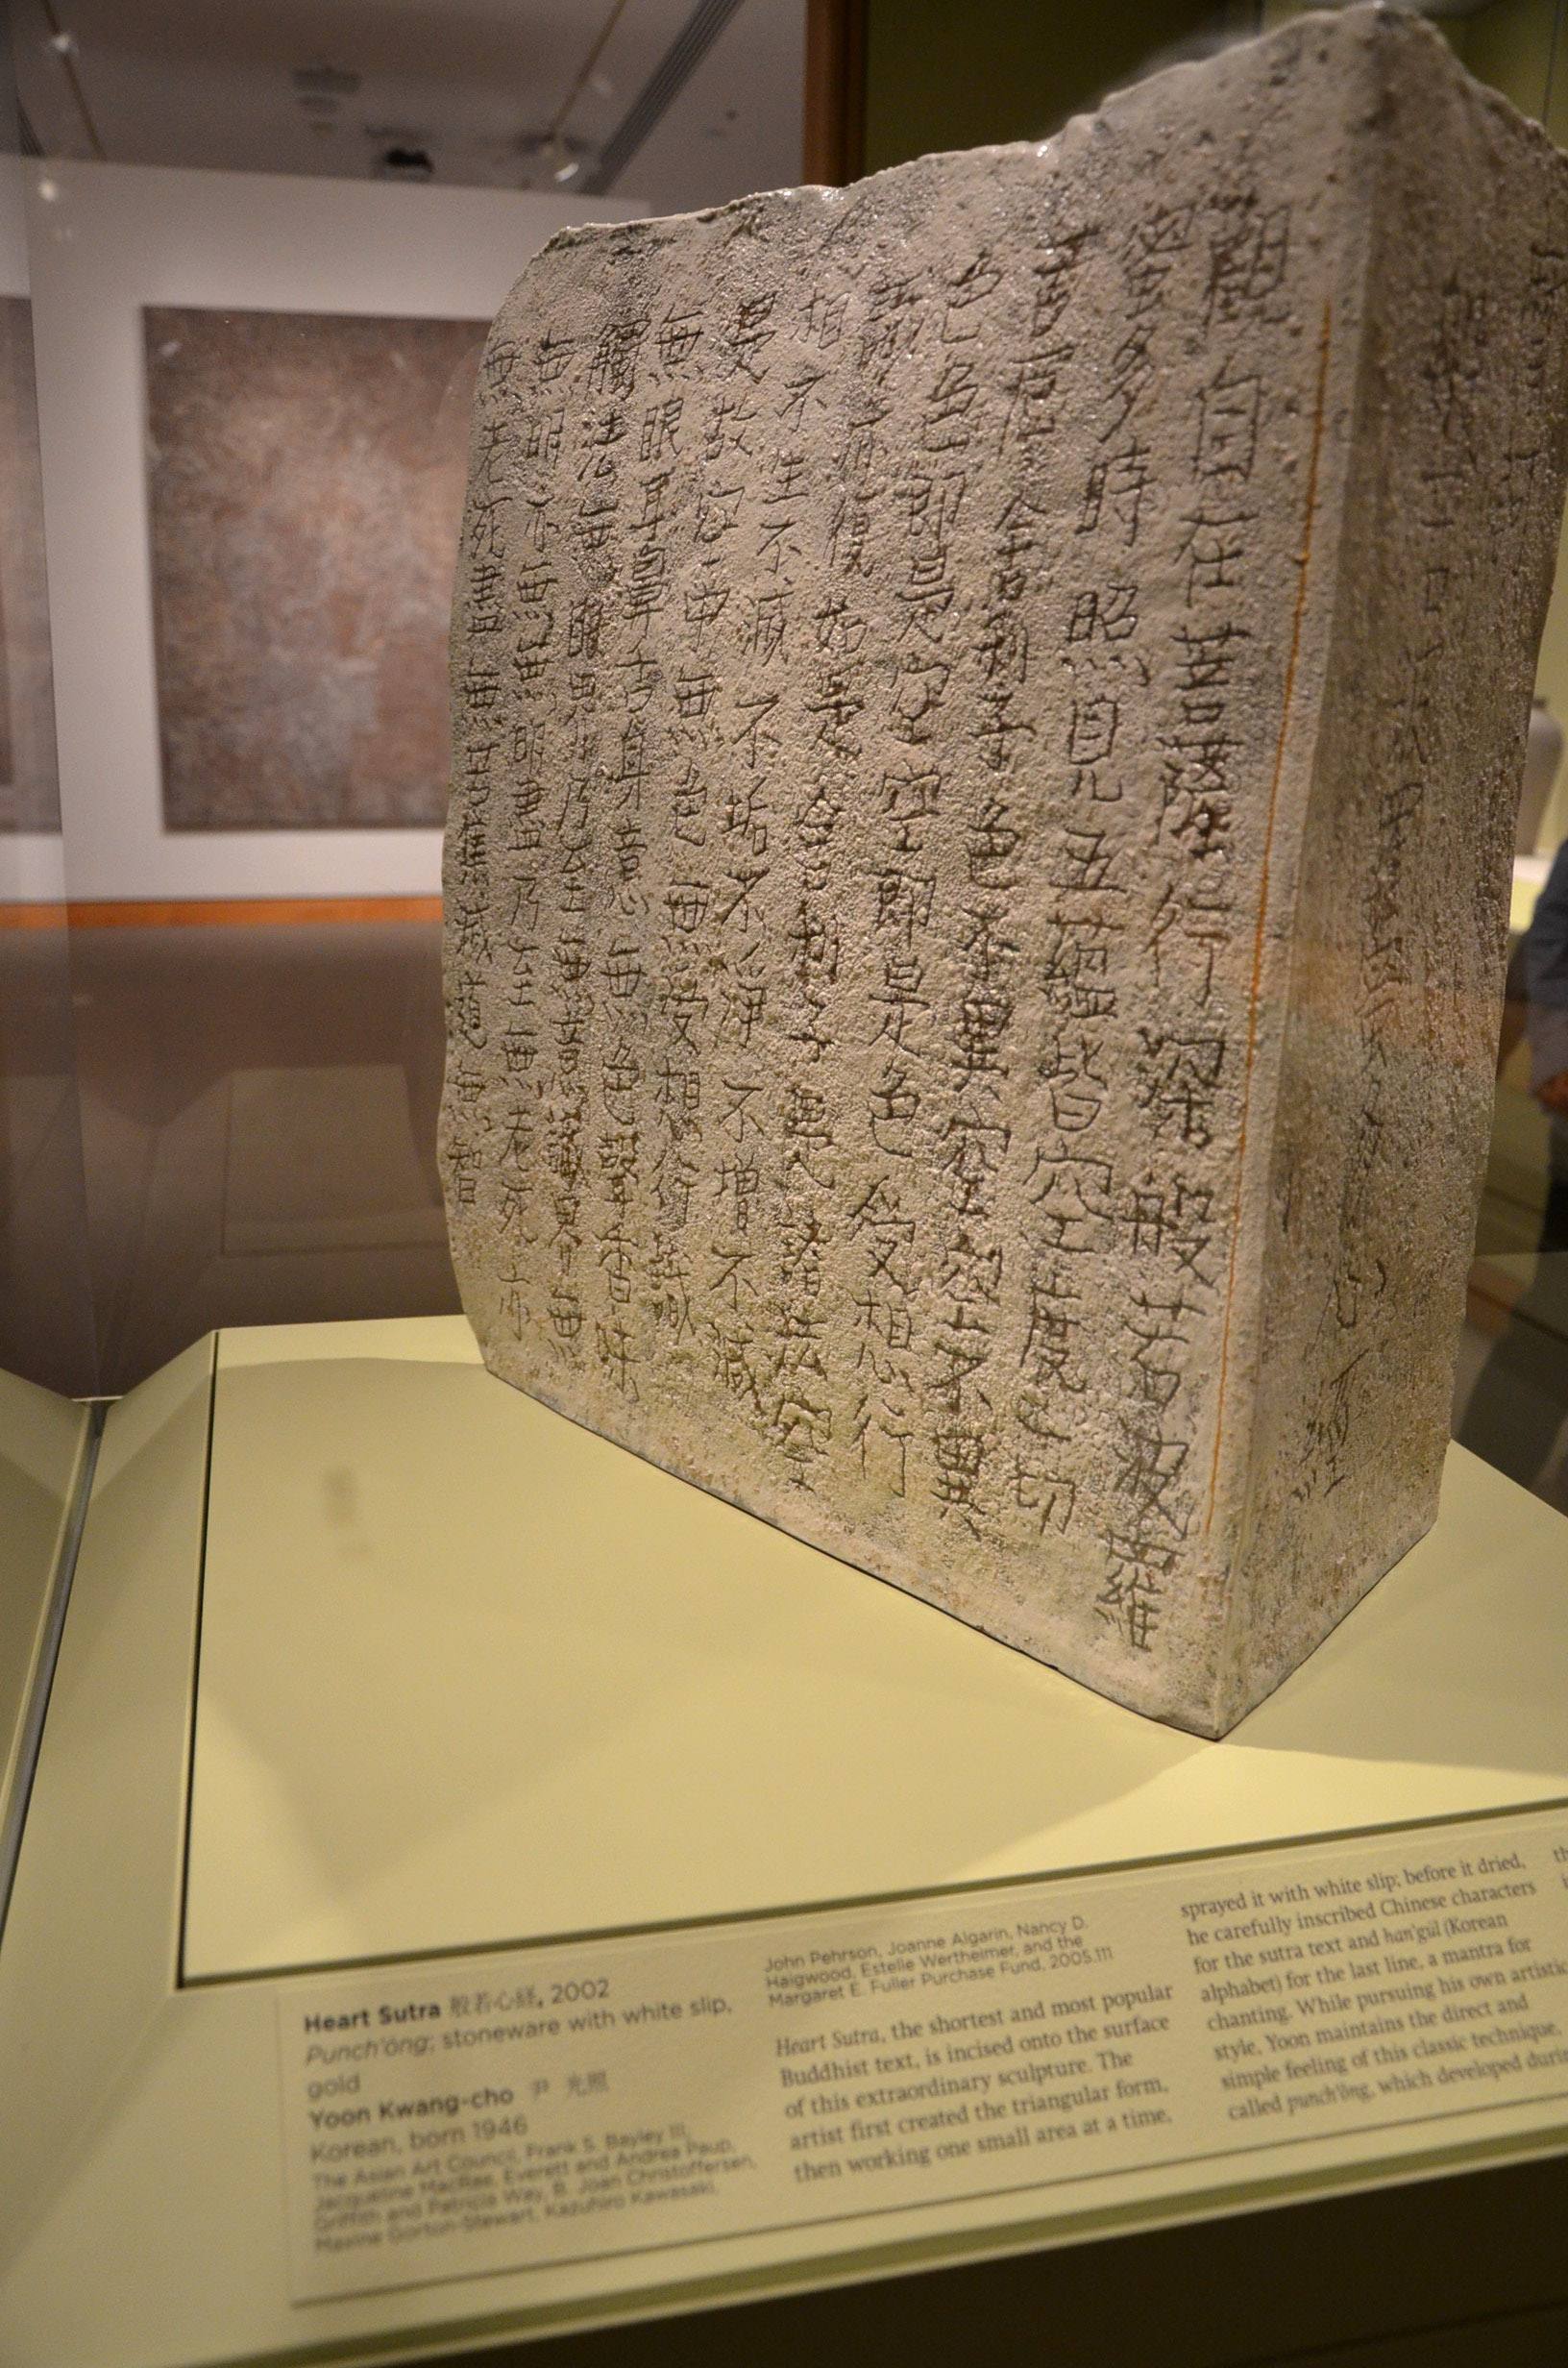 觀自在菩薩行深般若波羅
蜜多時照見五蘊皆空度一切
苦厄舍利子色不異空空不異
色色即是空空即是色受想行
識亦復如是舍利子是諸法空
相不生不滅不垢不淨不增不減
是故空中無色無受想行識
無眼耳鼻舌身意無色聲香味
觸法無眼界乃至無意識界無
無明亦無無明盡乃至無老死亦
無老死盡無苦集滅道無智
Heart Sutra 般若心経, 2002
Punch'ŏng; stoneware with white slip,
gold
Yoon Kwang-cho 尹 光照
Korean, born 1946
The Asian Art Council, Frank S. Bayley III,
Jacqueline MacRae, Everett and Andrea Paup,
Griffith and Patricia Way, B. Joan Christoffersen,
Maxine Gorton-Stewart, Kazuhiro Kawasaki,
John Pehrson, Joanne Algarin, Nancy D.
Haigwood, Estelle Wertheimer, and the
Margaret E. Fuller Purchase Fund, 2005.111
Heart Sutra, the shortest and most popular
Buddhist text, is incised onto the surface
of this extraordinary sculpture. The
artist first created the triangular form,
then working one small area at a time,
sprayed it with white slip; before it dried,
he carefully inscribed Chinese characters
for the sutra text and han'gŭl (Korean
alphabet) for the last line, a mantra for
chanting. While pursuing his own artistic
style, Yoon maintains the direct and
simple feeling of this classic technique,
called punch'ŏng, which developed durin